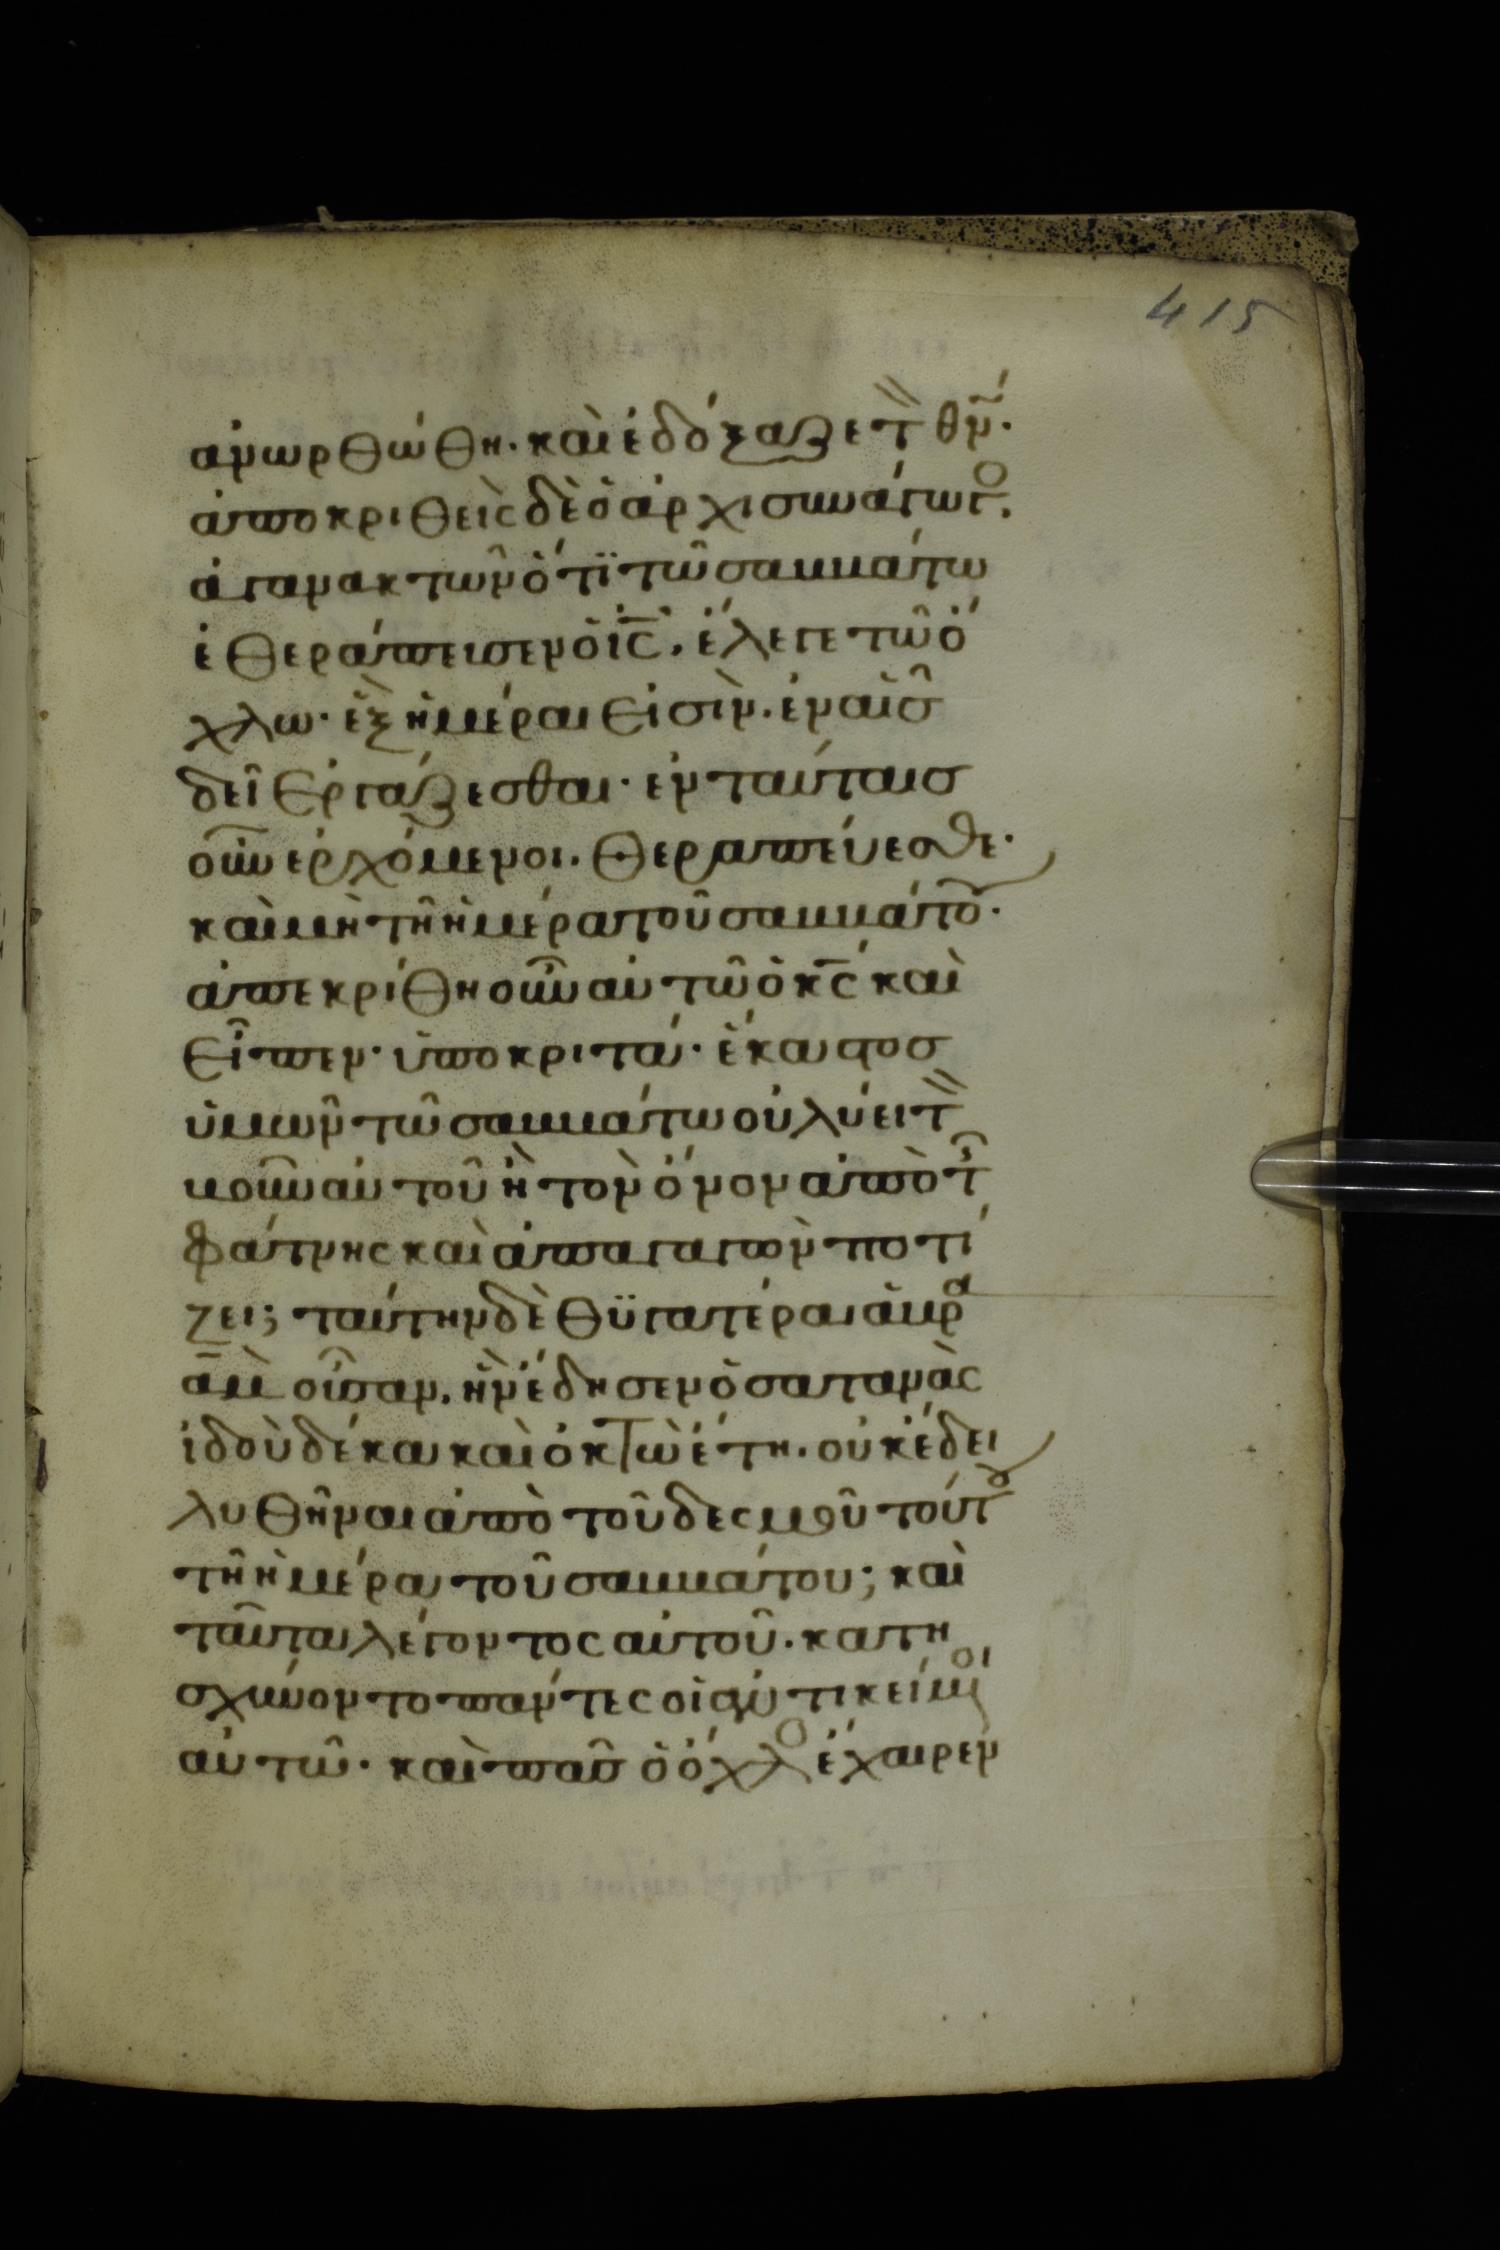 415
ἀνωρθώθη· καὶ ἐδόξαζε τ̏ θν̅·
ἀποκριθεὶς δὲ ὁ ἀρχισυνάγωγο·
ἀγανακτῶν ὅτϊ τῶ σαββάτω
ἐθεράπευσεν ὁ ις̅· ἔλεγε τῶ ὄ
χλω· ἓξ ἡμέραι εἰσὶν· ἐν αἷσ
δεῖ ἐργάζεσθαι· ἐν ταύταισ
οὖν ἐρχόμενοι· θεραπεύεσθε·
καὶ μὴ τῆ ἡμέρα τοῦ σαββάτου·
ἀπεκρίθη οὖν αὐτῶ ὁ κς̅ καὶ
εἶπεν· ὑποκριτά· ἕκαστοσ
ὑμῶν τῶ σαββάτω οὐ λύει τ̏
βοῦν αὐτοῦ ἢ τὸν ὄνον ἀπὸ τ̑
φάτνης καὶ ἀπαγαγὼν ποτί
ζει; ταύτην δὲ θϋγατέρα ἀβρα
ὰμ οὖσαν· ἣν ἔδησεν ὁ σατανὰς
ἰδοὺ δέκα καὶ ὀκτὼ ἔτη· οὐκ ἔδει
λυθῆναι ἀπὸ τοῦ δεσμοῦ τούτου
τῆ ἡμέρα τοῦ σαββάτου; καὶ
ταῦτα λέγοντος αὐτοῦ· κατη
σχύνοντο πάντες οἱ ἀντικείμοι
αὐτῶ· καὶ πᾶσ ὁ ὄχλο ἔχαιρεν